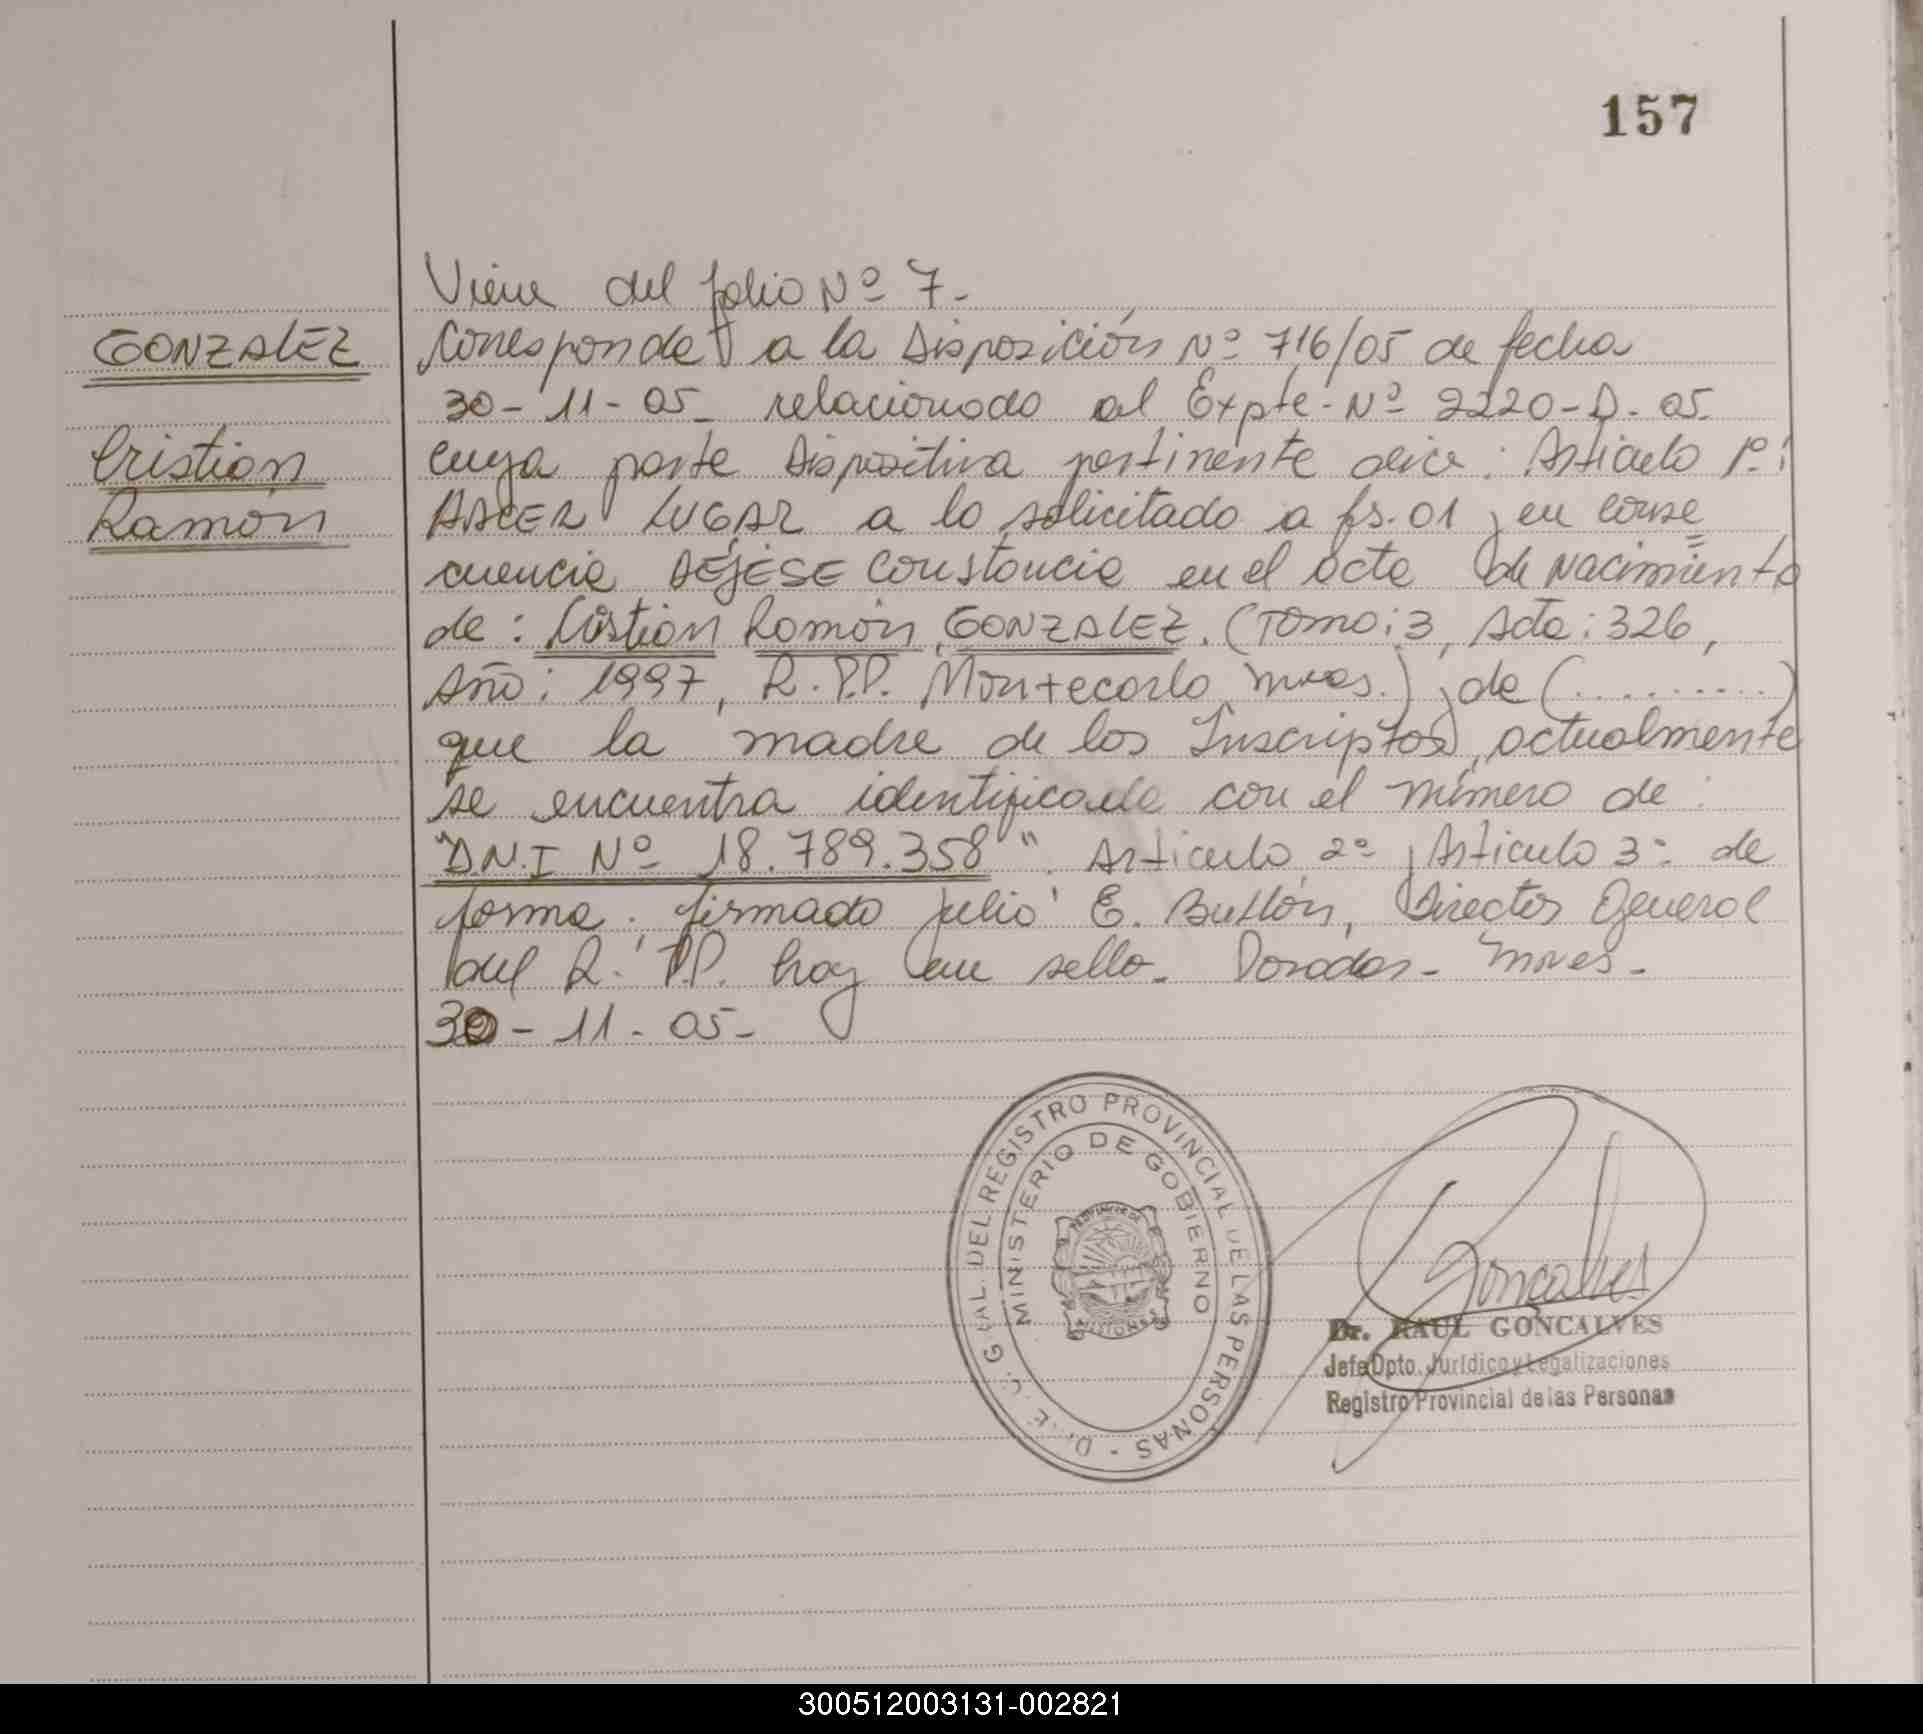 157
Viene del folio Nº 7-
GONZALEZ
Corresponde a la Disposición Nº 716/05 de fecha
30-11-05- relacionado al Expte-Nº 2220-D-05
Cristian
cuya parte dispositiva pertinente dice: Artículo 1º:
Ramón
HACER LUGAR a lo solicitado a fs. 01, en conse
cuencia DÉJESE constancia en el acta de nacimiento
de: Cristian Ramón GONZALEZ. (Tomo: 3, Acta: 326,
Año: 1997, R.P.P. Montecarlo Mnes.), de (.........)
que la madre de los Inscriptos, actualmente
se encuentra identificada con el número de:
"D.N.I Nº 18.789.358". Artículo 2º, Artículo 3º de
forma. firmado Julio E. Buttón, Director General
del R. P.P. hay un sello. Posadas- Mnes-
30-11-05-
DIREC. GRAL. DEL REGISTRO PROVINCIAL DE LAS PERSONAS -
MINISTERIO DE GOBIERNO
PROVINCIA DE
MISIONES
Goncalves
Dr. RAUL GONCALVES
Jefe Dpto. Jurídico y Legalizaciones
Registro Provincial de las Personas
300512003131-002821